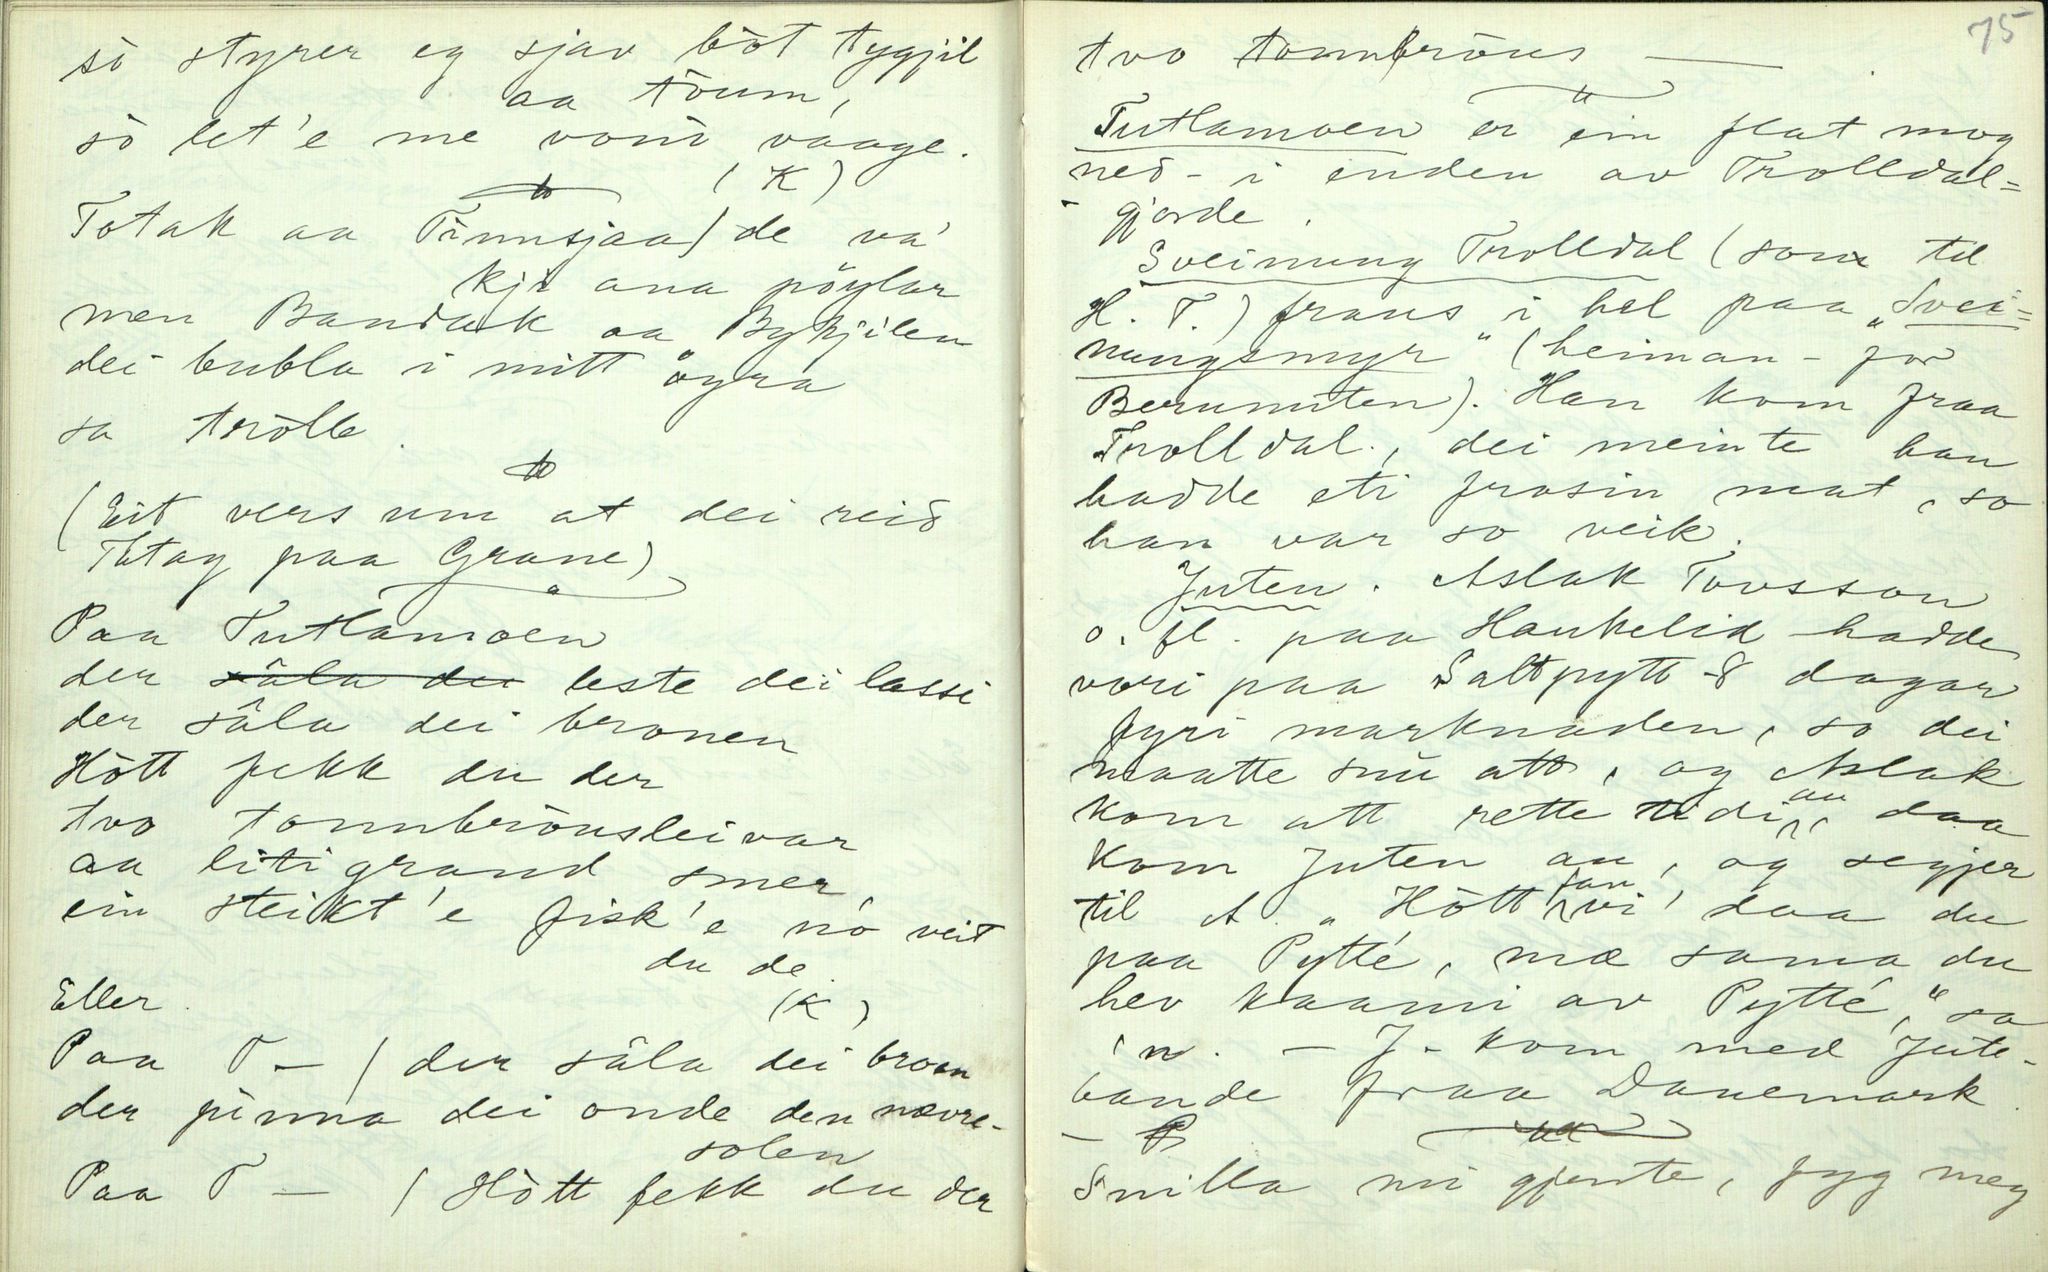 sò styrer eg sjav bòt tygjil
aa tòum,
sò let'e me voni vaage.
(K)
Totak aa Tinnsjaa / de va'
kji ana pöylar
men Bandak aa Bykjilen
dei bubla i mitt ögra
sa tròlle.
(Eit vers um at dei reið
Totag paa Grane)
Paa Tutlamoen
der sâla dei leste dei lassi
der sâla dei bronen
Hòtt fekk du der
tvo tonnbrönsleivar
aa litigrand smer,
ein steikt'e fisk'e nò veit
du de.
(K)
Eller.
Paa T – / der sâla dei broen
der pinna dei onde den nævre-
solen
Paa T – / Hòtt fekk du der
75
tvo tonnbröns —
Tutlamoen er ein flat mog
neð- i enden av Trolldal-
gjorde.
Sveinung Trolldal (son til
H. T.) fraus i hel paa „Svei-
nungsmyr" (heiman-for
Berunuten). Han kom fraa
Trolldal., dei meinte han
hadde eti frosin mat, so
han var so veik.
Juten. Aslak Tovsson
o. fl. paa Haukelid hadde
vori paa Saltpytt 8 dagar
fyri marknaden, so dei
maatte snu att, og Aslak
kom att rette tidi, daa
kom Juten au, og segjer
til A. „Hòtt vi' daa du
paa Pytté, mæ sama du
hev kaami av Pytté," sa
'n. – J. kom med Jute-
bande fraa Danemark.
Snilla mi gjente, fyg meg